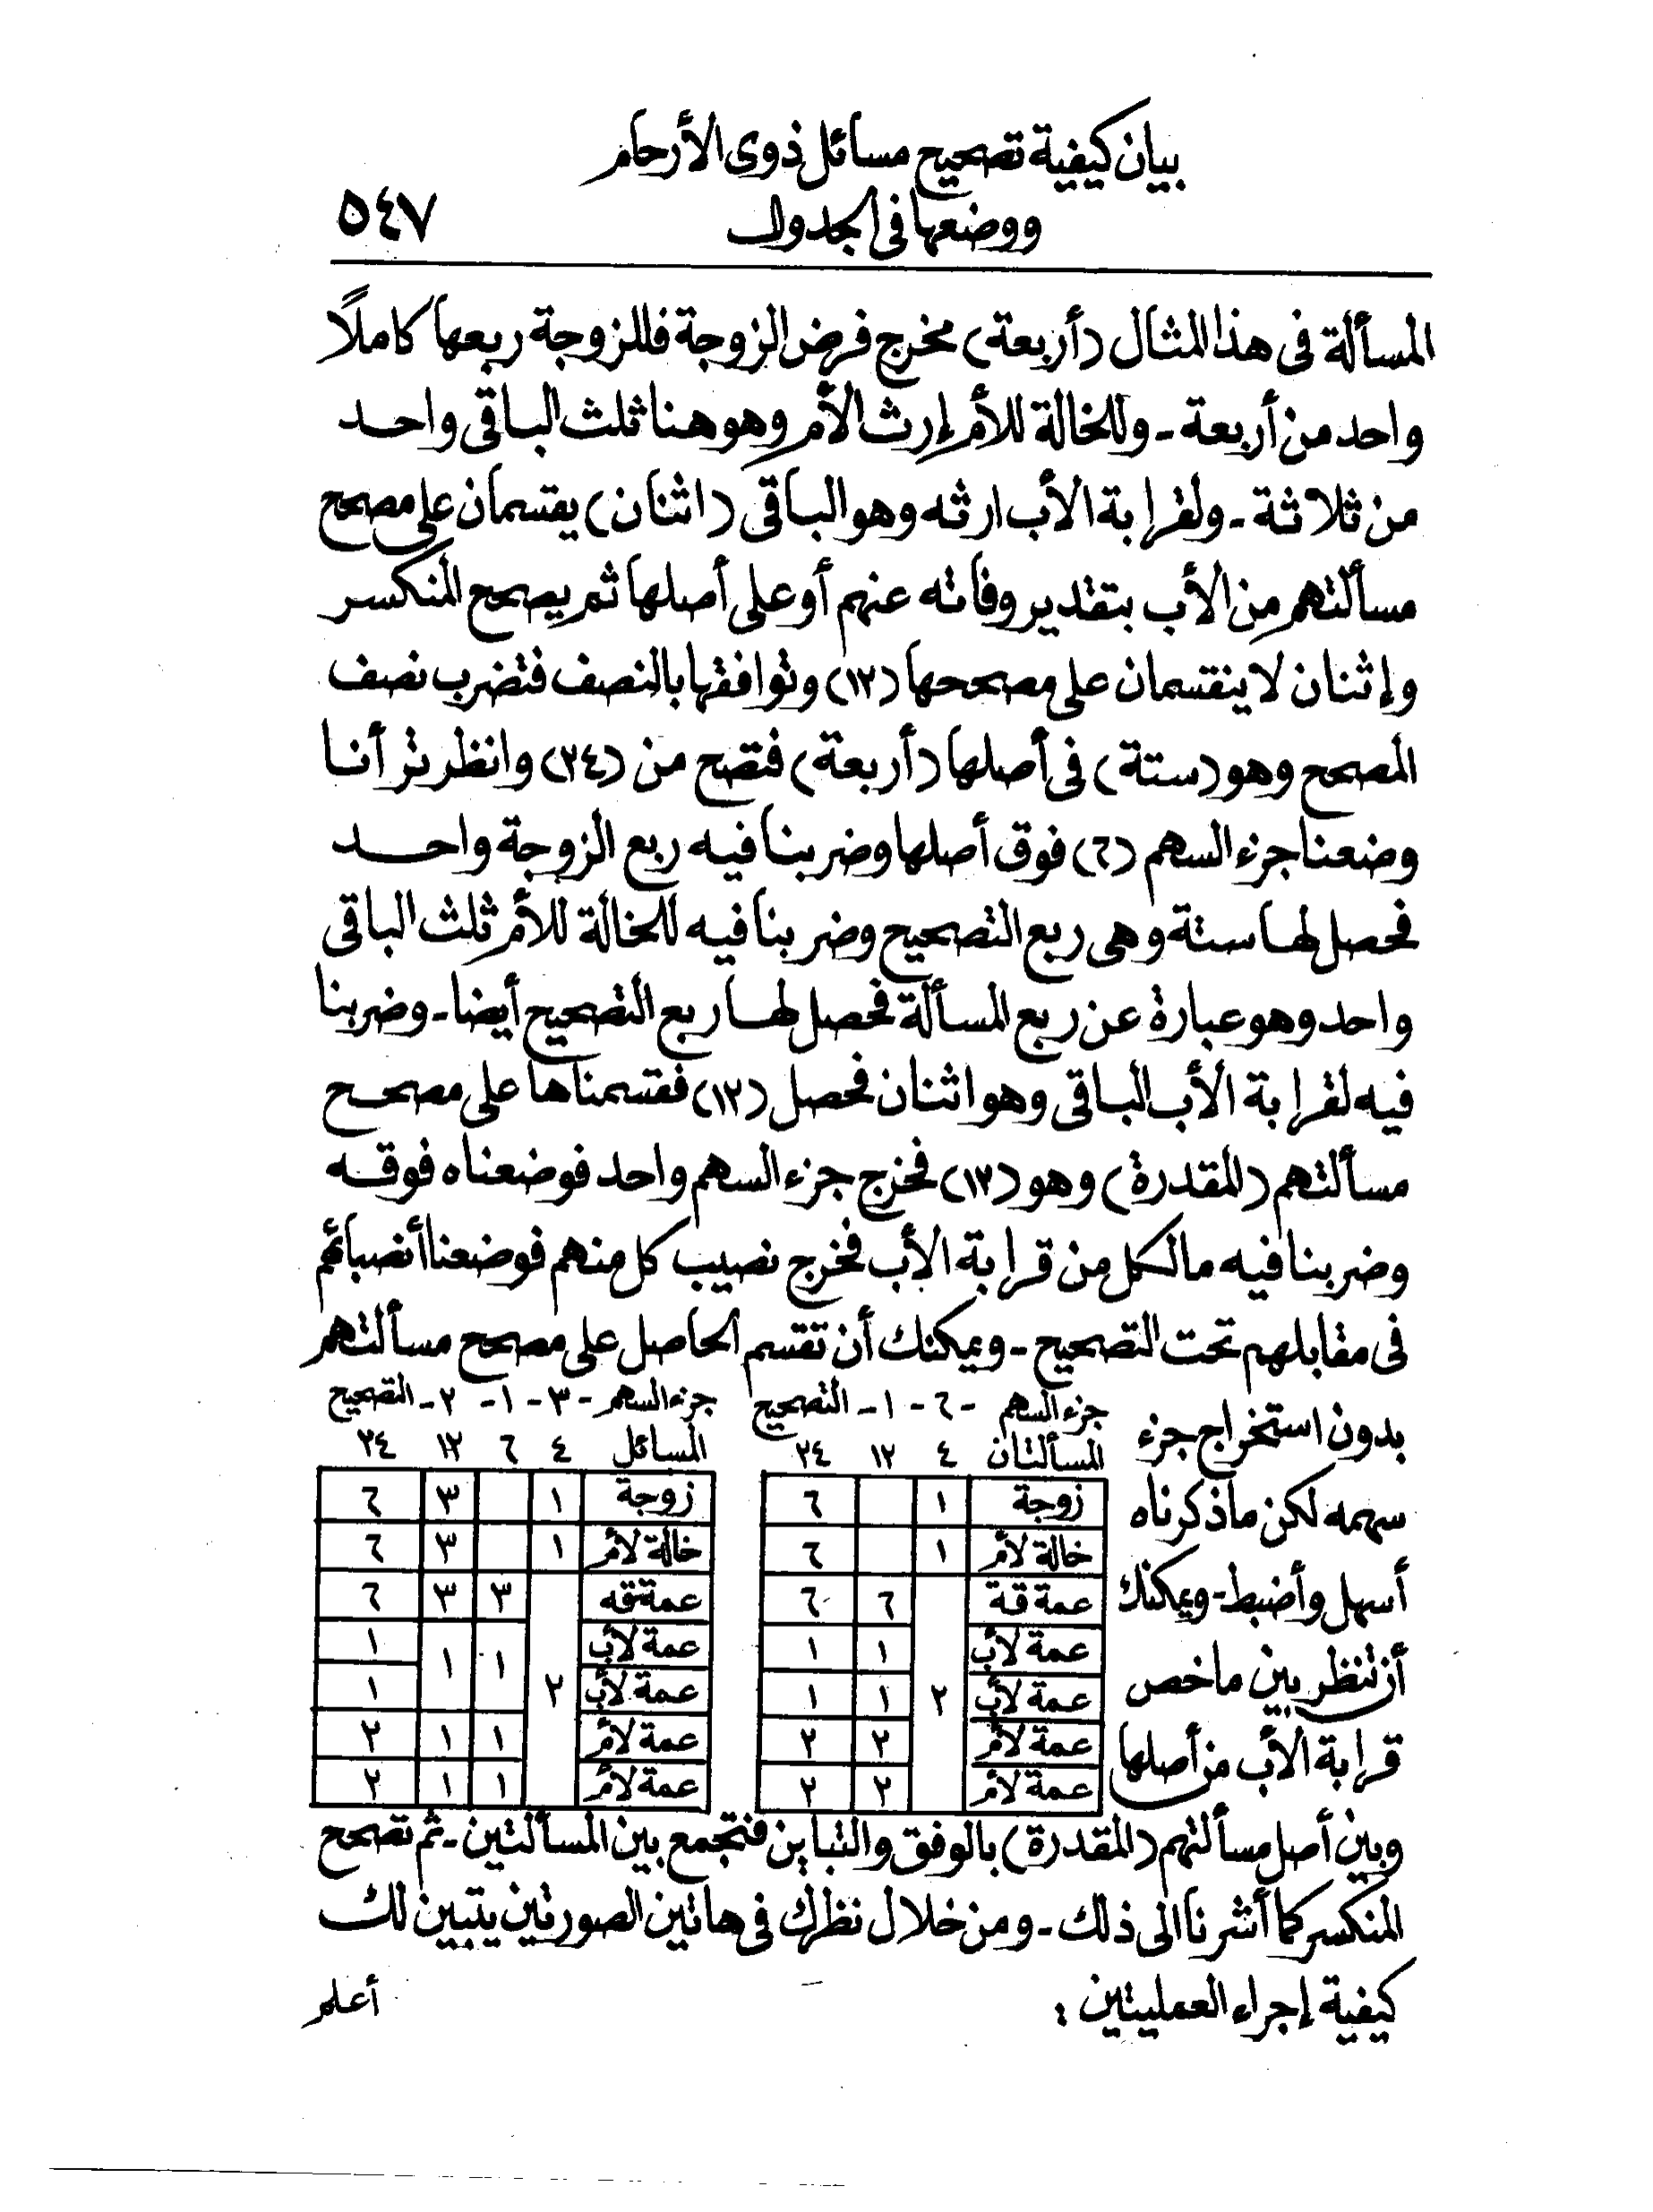 بيان كيفية تصحيح مسائل ذوى الأرحام
ووضعها فى الجدول
٥٤٧
المسألة فى هذا المثال (أربعة) مخرج فرض الزوجة فللزوجة ربعها كاملًا
واحد من أربعة - وللخالة للأم إرث الأم وهو هنا ثلث الباقى واحد
من ثلاثة - ولقرابة الأب ارثه وهو الباقى (اثنان) يقسمان على مصحح
مسألتهم من الأب بتقدير وفاته عنهم أو على أصلها ثم يصحح المنكسر
وإثنان لا ينقسمان على مصححها (١٢) وتوافقها بالنصف فتضرب نصف
المصحح وهو (ستة) فى أصلها (أربعة) فتصح من (٢٤) وانظر تر أنا
وضعنا جزء السهم (٦) فوق أصلها وضربنا فيه ربع الزوجة واحد
فحصل لها ستة وهى ربع التصحيح وضربنا فيه للخالة للأم ثلث الباقى
واحد وهو عبارة عن ربع المسألة فحصل لها ربع التصحيح أيضا - وضربنا
فيه لقرابة الأب الباقى وهو اثنان فحصل (١٢) فقسمناها على مصحح
مسألتهم (المقدرة) وهو (١٢) فخرج جزء السهم واحد فوضعناه فوقه
وضربنا فيه مالكل من قرابة الأب فخرج نصيب كل منهم فوضعنا أنصبائهم
فى مقابلهم تحت التصحيح - ويمكنك أن تقسم الحاصل على مصحح مسألتهم
بدون استخراج جزء
سهمه لكن ما ذكرناه
أسهل وأضبط - ويمكنك
أن تنظر بين ما خص
قرابة الأب من أصلها
جزء السهم - ٦ - ١ - التصحيح
المسألتان ٤ ١٢ ٢٤
زوجة ١ ٦
خالة لأم ١ ٦
عمة قة ٢ ٦ ٦
عمة لأب ١ ١
عمة لأب ١ ١
عمة لأم ٢ ٢
عمة لأم ٢ ٢
جزء السهم - ٣ - ١ - ٢ - التصحيح
المسائل ٤ ٦ ١٢ ٢٤
زوجة ١ ٣ ٦
خالة لأم ١ ٣ ٦
عمة قه ٢ ٣ ٣ ٦
عمة لأب ١ ١ ١
عمة لأب ١
عمة لأم ١ ١ ٢
عمة لأم ١ ١ ٢
وبين أصل مسألتهم (المقدرة) بالوفق والتباين فتجمع بين المسألتين - ثم تصحح
المنكسر كما أشرنا الى ذلك - ومن خلال نظرك فى هاتين الصورتين يتبين لك
كيفية إجراء العمليتين :
أعلم